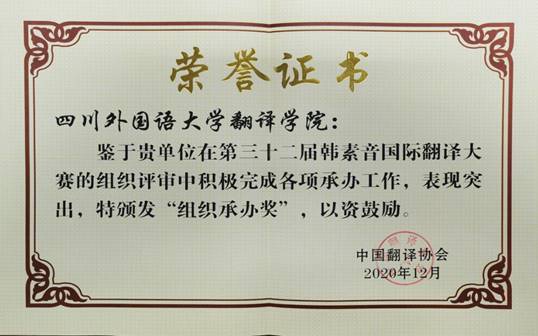 荣誉证书
四川外国语大学翻译学院：
鉴于贵单位在第三十二届韩素音国际翻译大
赛的组织评审中积极完成各项承办工作，表现突
出，特颁发“组织承办奖”，以资鼓励。
中国翻译协会
2020年12月